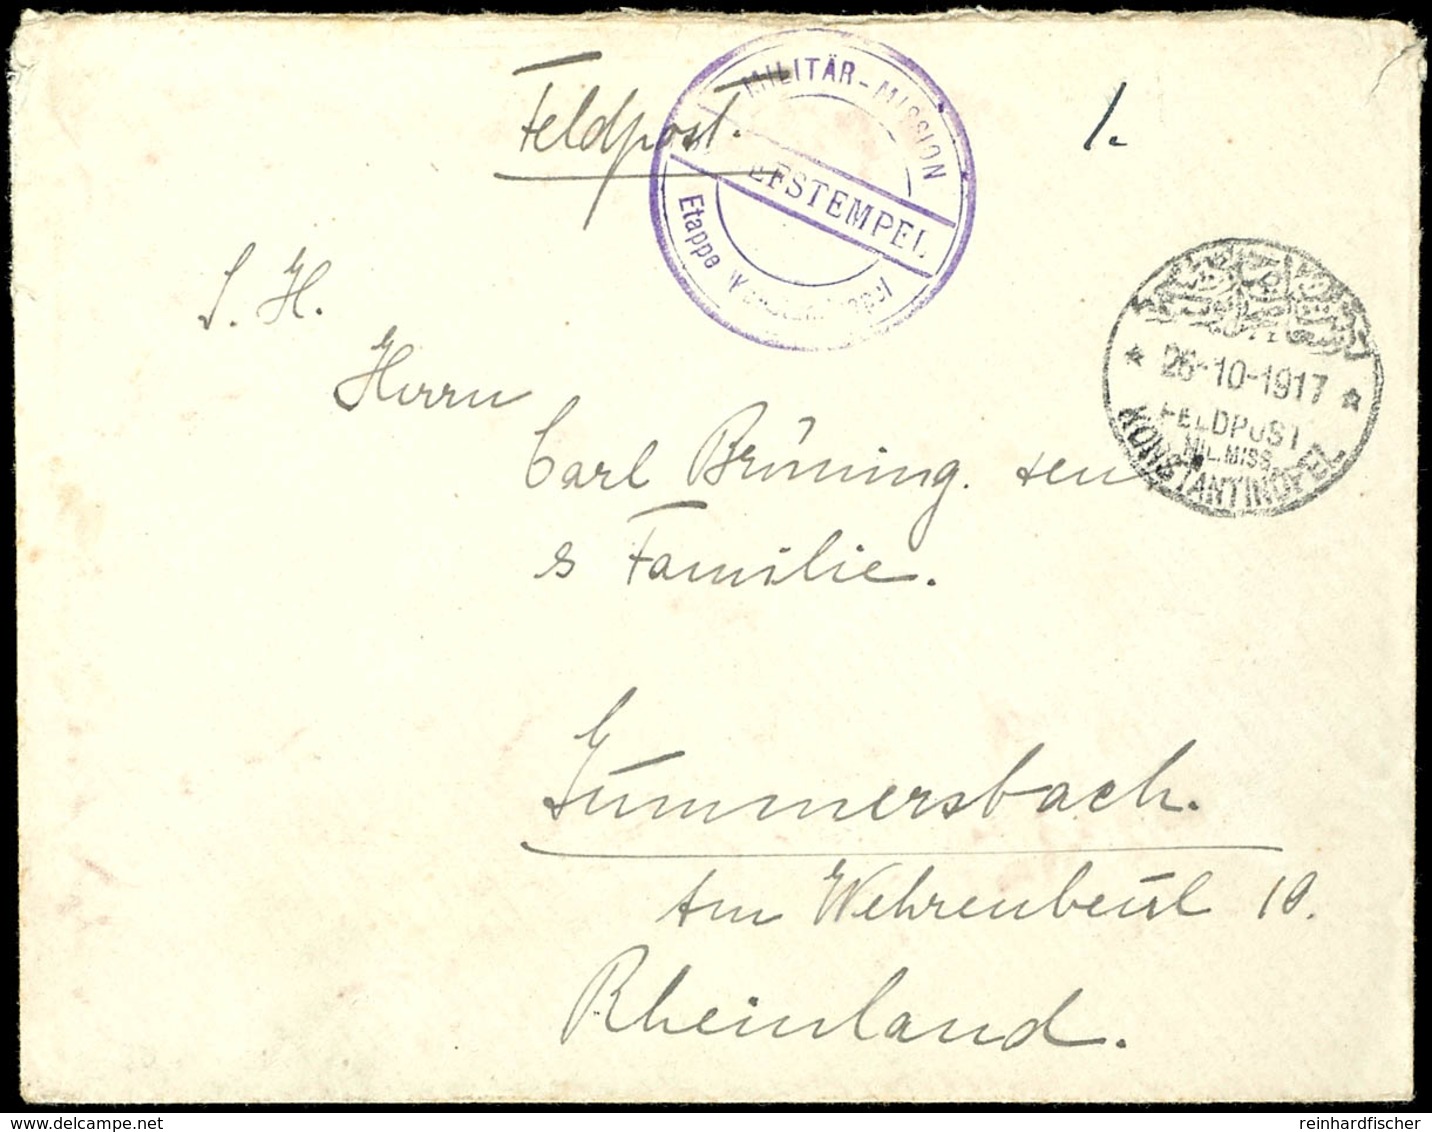 Feldpost.
MILITÄR-MISSION
BRIEFSTEMPEL
Etappe Konstantinopel
1.
26-10-1917
FELDPOST
MIL. MISS.
KONSTANTINOPEL
S. H.
Herrn
Carl Brüning. sen
& Familie.
Gummersbach.
Am Wehrenbeul 10.
Rheinland.
delcampe.net
reinhardfischer